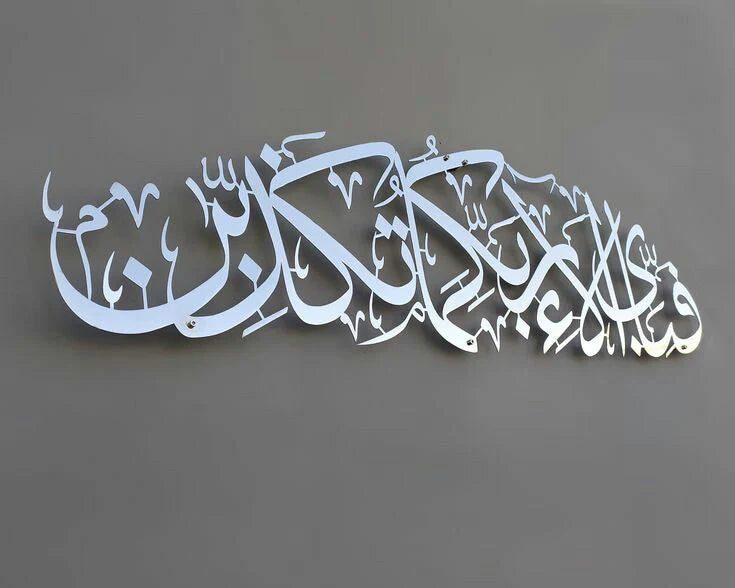 فبأي آلاء ربكما تكذبن